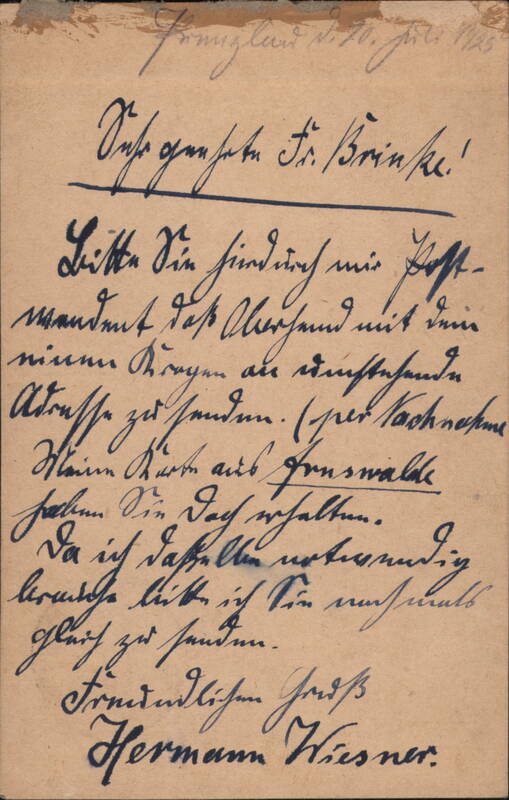 Prenzlau d. 20. Juli 1925
Sehr geehrte Fr. Brinke!
Bitte Sie hierdurch mir Post-
wendent daß Oberhemd mit dem
einen Kragen an umstehende
Adresse zu senden. (per Nachnahme
Meine Karte aus Arnswalde
haben Sie doch erhalten.
Da ich dasselbe notwendig
brauche bitte ich Sie nochmals
gleich zu senden.
Freundlichen Gruß
Hermann Wiesner.